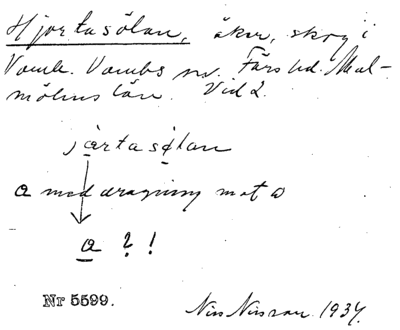 Hjortasölan, åker, skog i
Vomb. Vombs sn. Färs hd. Mal-
möhus län. Vid 2.
jårtasølan
a med dragning mot o
a ? !
Nr 5599.
Nils Nilsson. 1934.